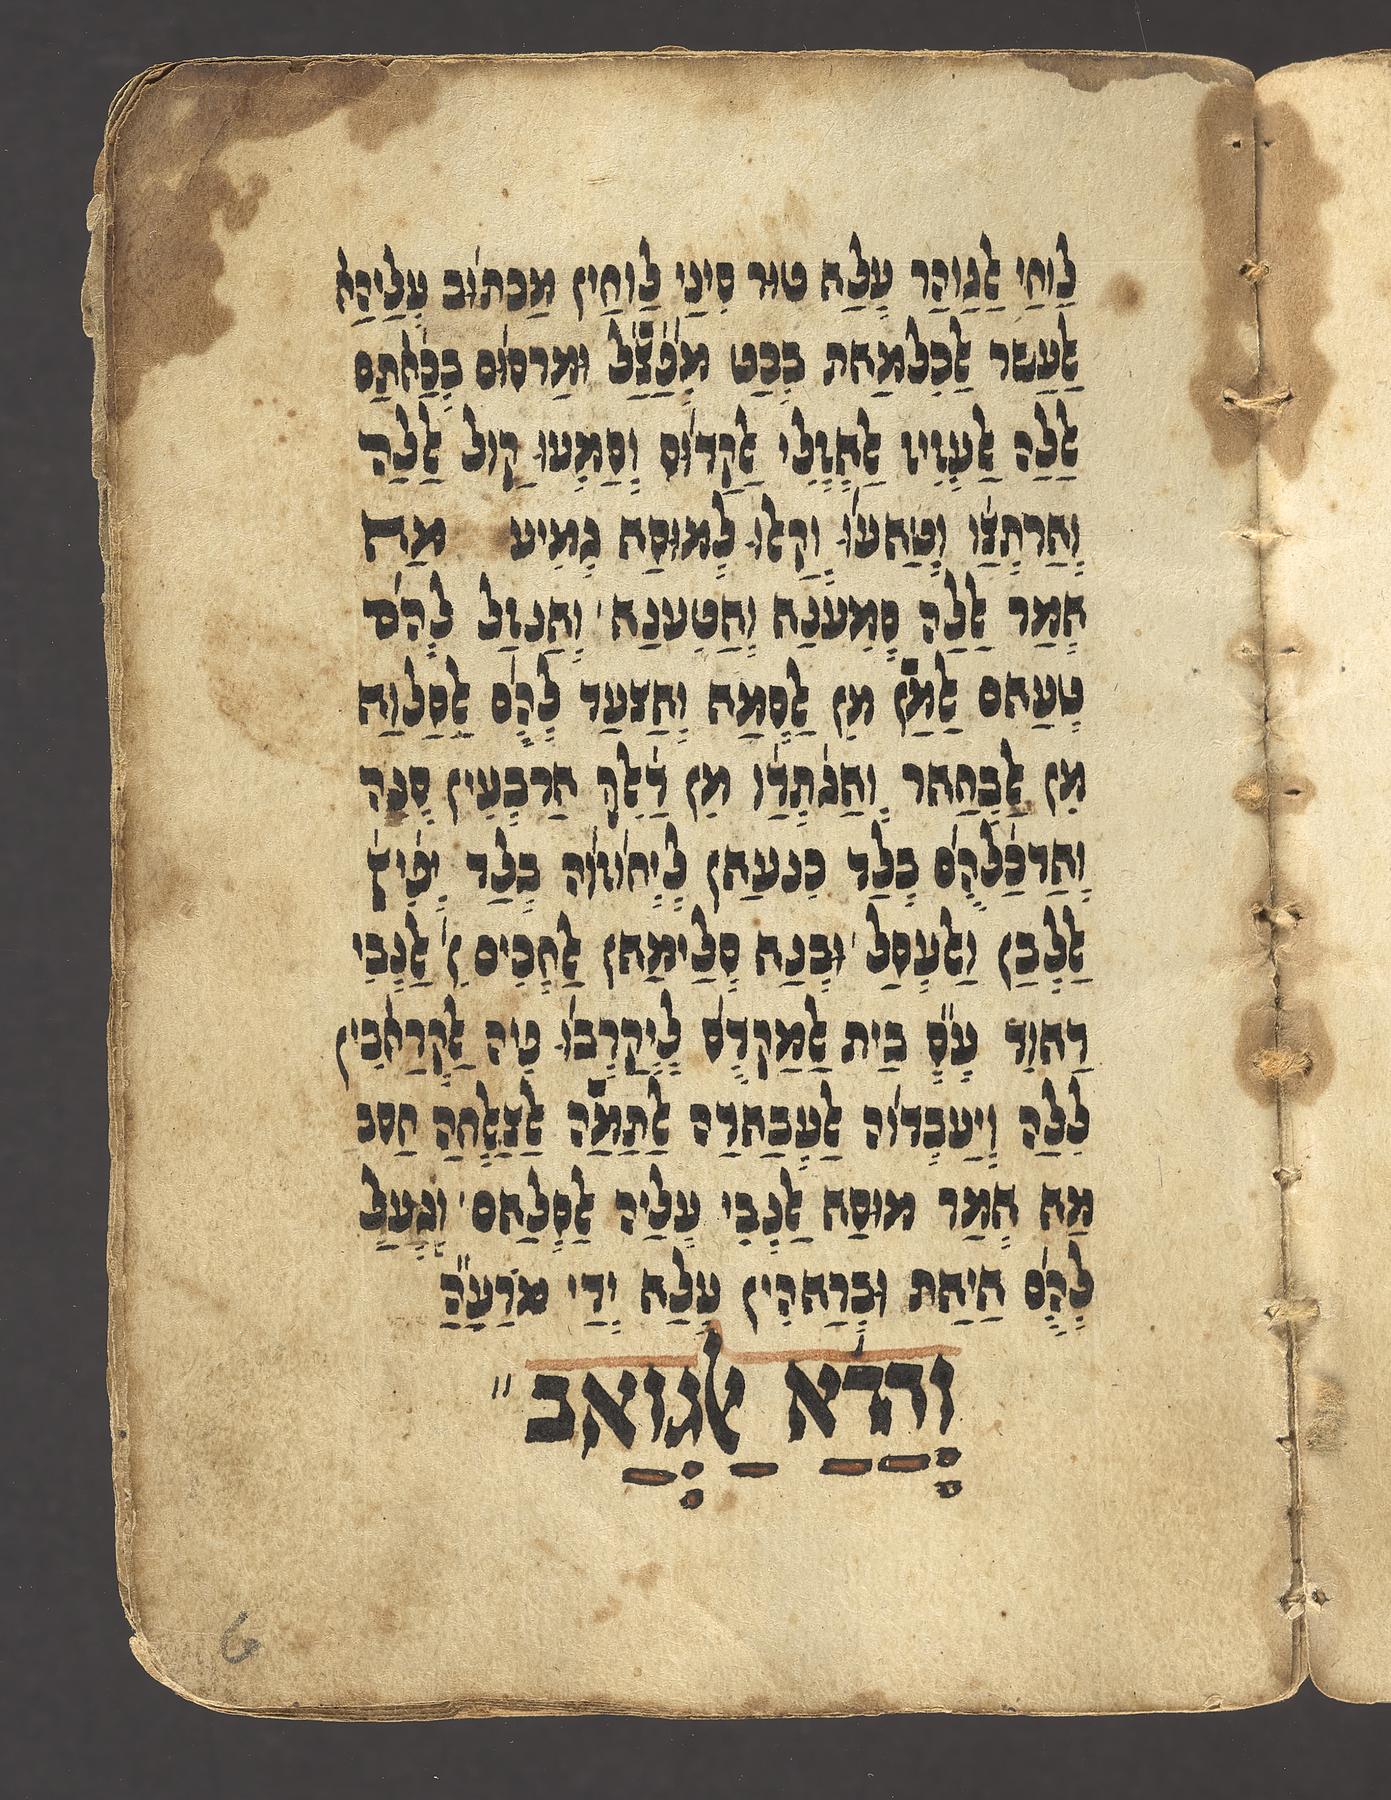 לַוחַי אַלגַוהַר עַלַא טור סִינַי לַוחַין מַכתוב עַליהַא
אַלעַשר אַלכִלמַאת בכַט מֻפַצַל ומַרסום בכַאתַם
אַללַה אַלעַזיז אַלאָזַלי אַלקַדוס וָסַמִעו קַול אַללַה
וָארתָצַו וָטַאעו וָקַאלו לָמוסַא גָמִיע מַא
אָמַר אַללַה סָמִענַא וָאַטִענַא׳ וָאַנזַל לָהֹם
טָעַאם אַלמַן מִן אַלסָמַא וָאַצעַד לָהֹם אַלסַלוַא
מִן אַלבָחַאר וָאַגתָדַו מִן דַלִךּ אַרבָעִין סָנַה
וָאַדכַלָהֹם בָלַד כִנעַאן לִיָחוזוה בָלַד יָפִיץ
אַללָבַן וַאלעָסַל׳ ובָנַא סָלַימַאן אַלחָכִים ן׳ אַלנָבִי
דַאוַד עָ״ס בַית אַלמַקדָס לִיָקַרָבו פִיה אַלקָרַאבִין
לִללַה וָיַעבָדוה אַלעִבַאדַה אַלתַמַה אַלצַאלָחַה חַסב
מַא אָמַר מוסַא אַלנָבִי עָלַיה אַלסָלַאם׳ וָגָעַל
לָהֹם אַיַאת ובָרַאהִין עַלַא יָדַי מֹרַעַ״ה
וָהַדַא אַלגָוַאב״
6